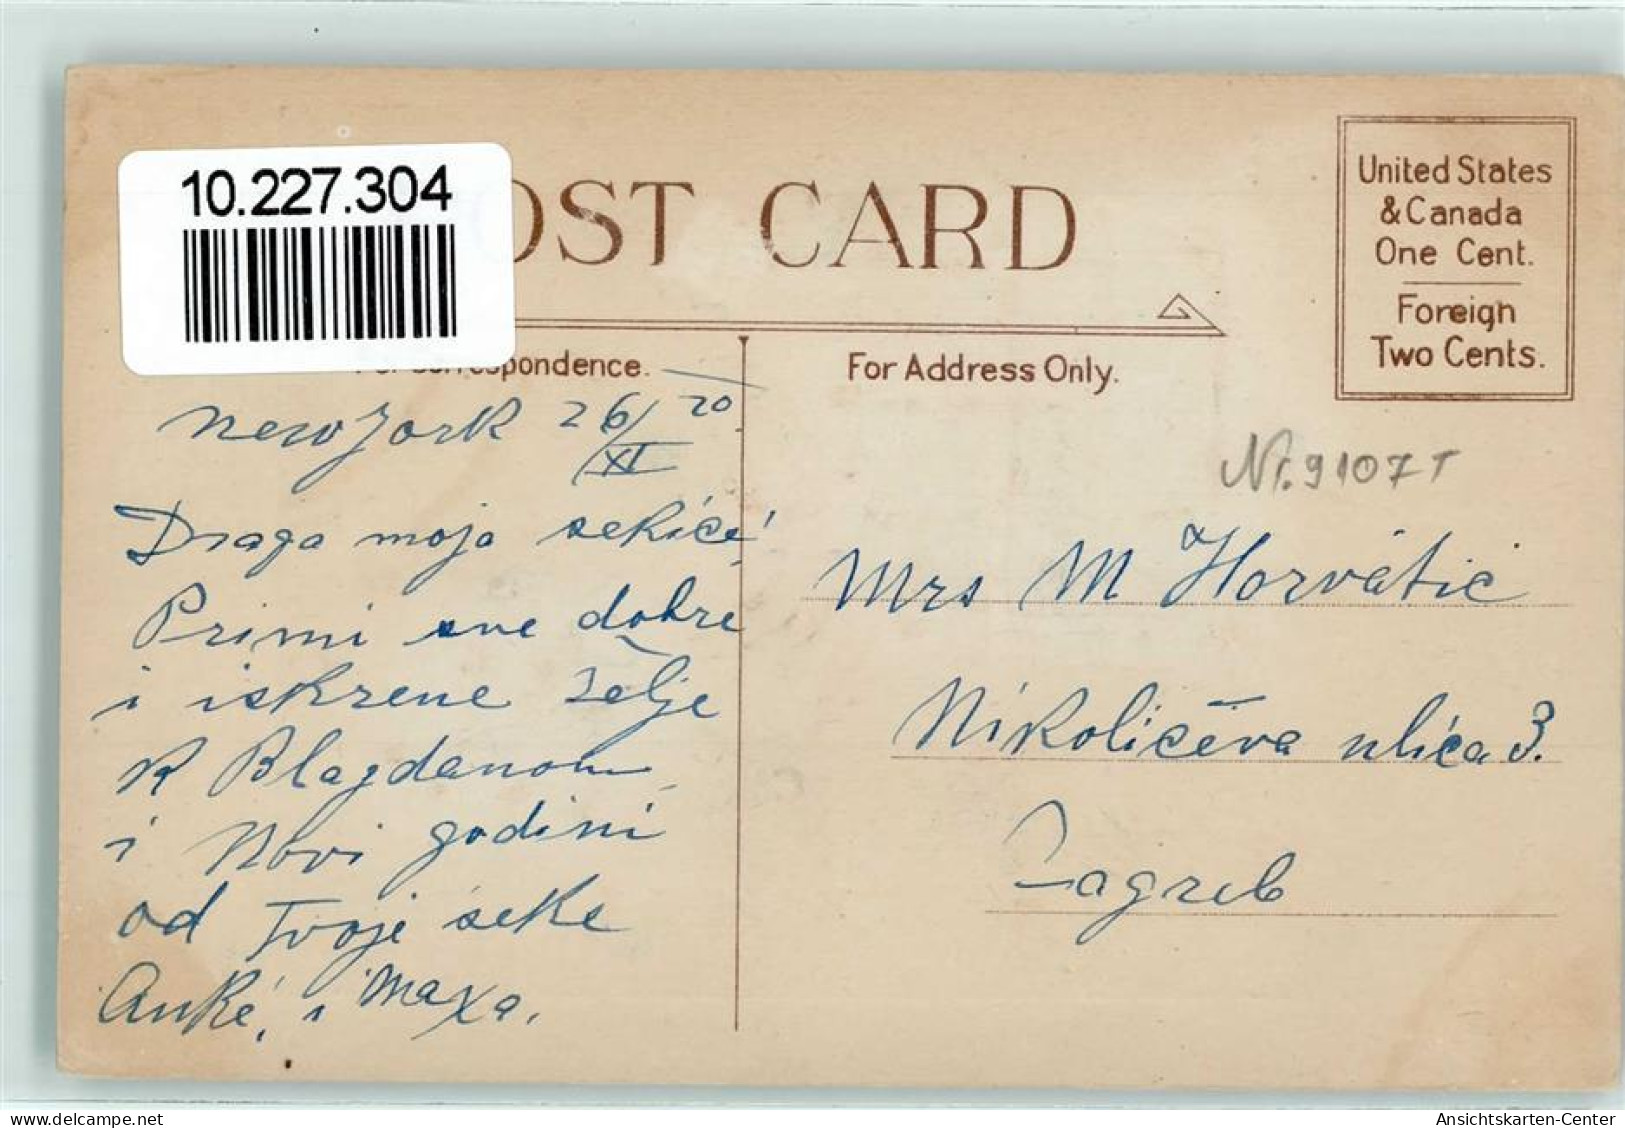 10.227.304
OST CARD
United States
& Canada
One Cent.
Foreign
Two Cents.
For Correspondence.
For Address Only.
New Jork 26/XI 20
Draga moja sekice!
Primi sve dobre
i iskrene želje
K Blagdanom
i Novi godini
od Tvoje seke
Anke, i Maxa.
Nr. 9107 T
Mrs M Horvatic
Nikoličeva ulica 3.
Zagreb
Ansichtskarten-Center
delcampe.net